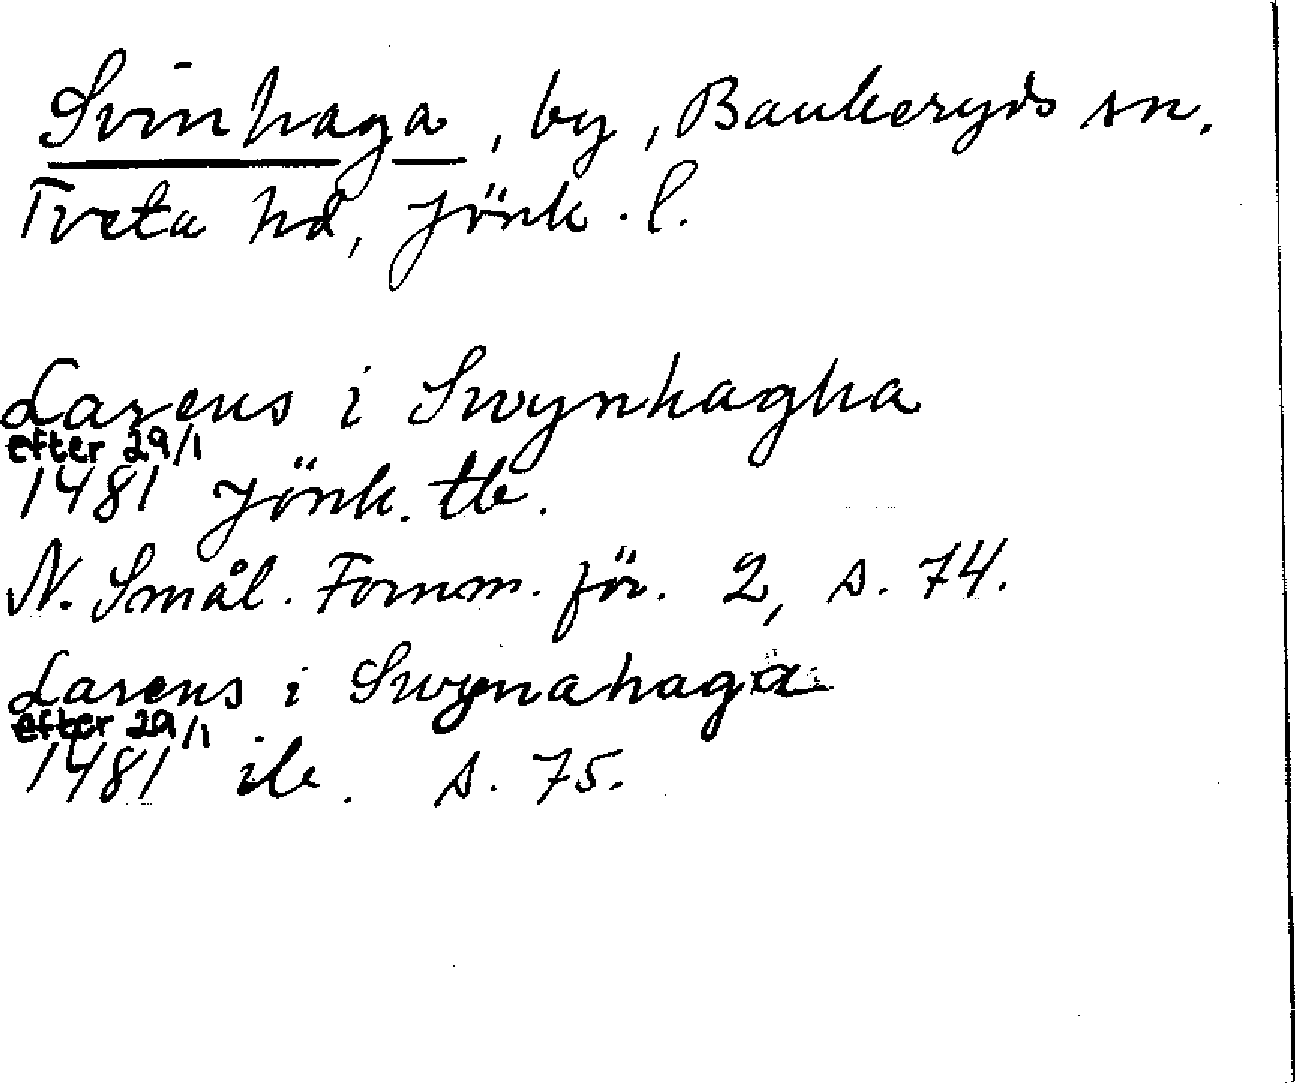 Svinhaga, by, Bankeryds sn,
Tveta hd, Jönk. l.
Larens i Swynhagha
efter 29/1
1481 Jönk. tb.
N. Smål. Fornm. för. 2, s. 74.
Larens i Swynahaga
efter 29/1
1481 ib. s. 75.